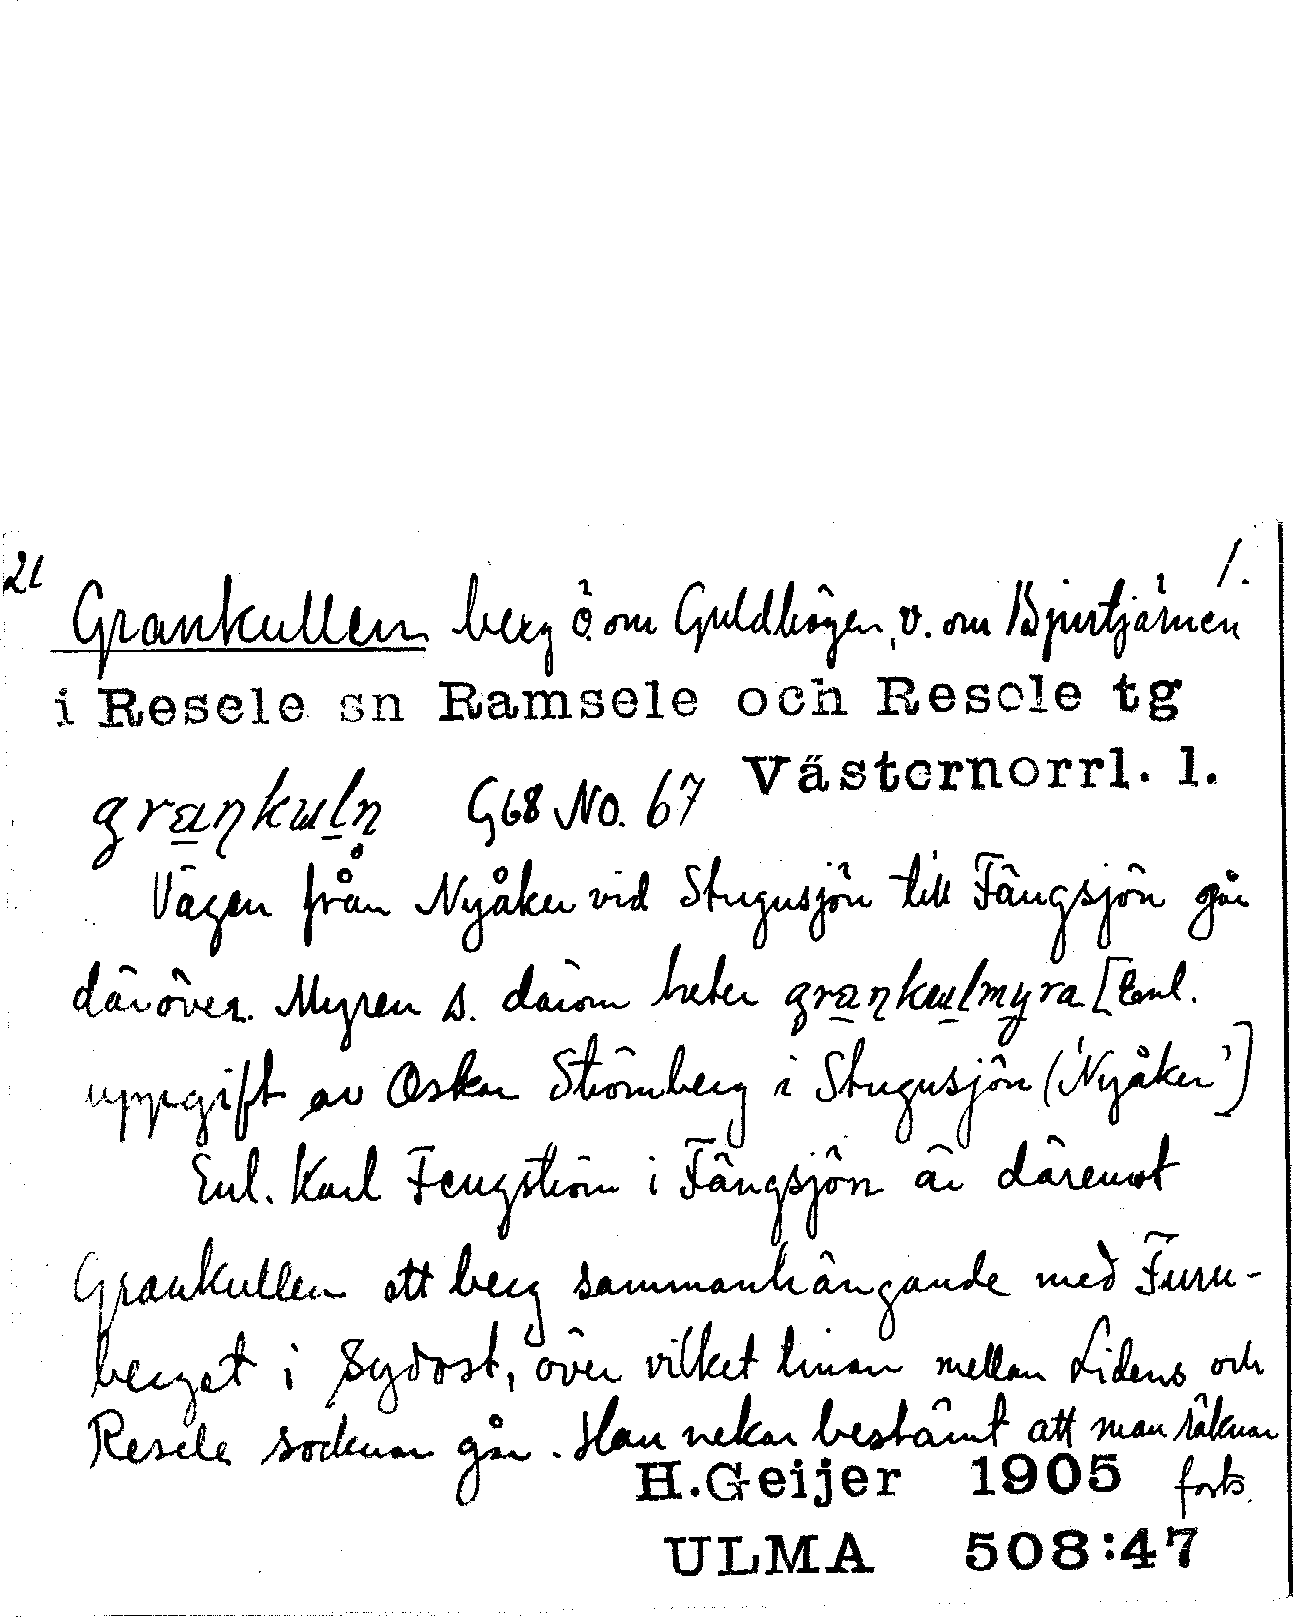 21 1.
Grankullen berg ö. om Guldhögen, v. om Bjurtjärnen
i Resele sn Ramsele och Resele tg
Västernorrl. l.
grankuln̥ G68 No. 67
Vägen från Nyåker vid Stugusjön till Fängsjön går
däröver. Myren s. därom heter grankulmyra [Enl.
uppgift av Oskar Strömberg i Stugusjön ('Nyåker')]
Enl. Karl Fengström i Fängsjön är däremot
Grankullen ett berg sammanhängande med Furu-
berget i sydost, över vilket linan mellan Lidens och
Resele socknar går. Han nekar bestämt att man räknar
H.Geijer 1905 forts.
ULMA 508:47